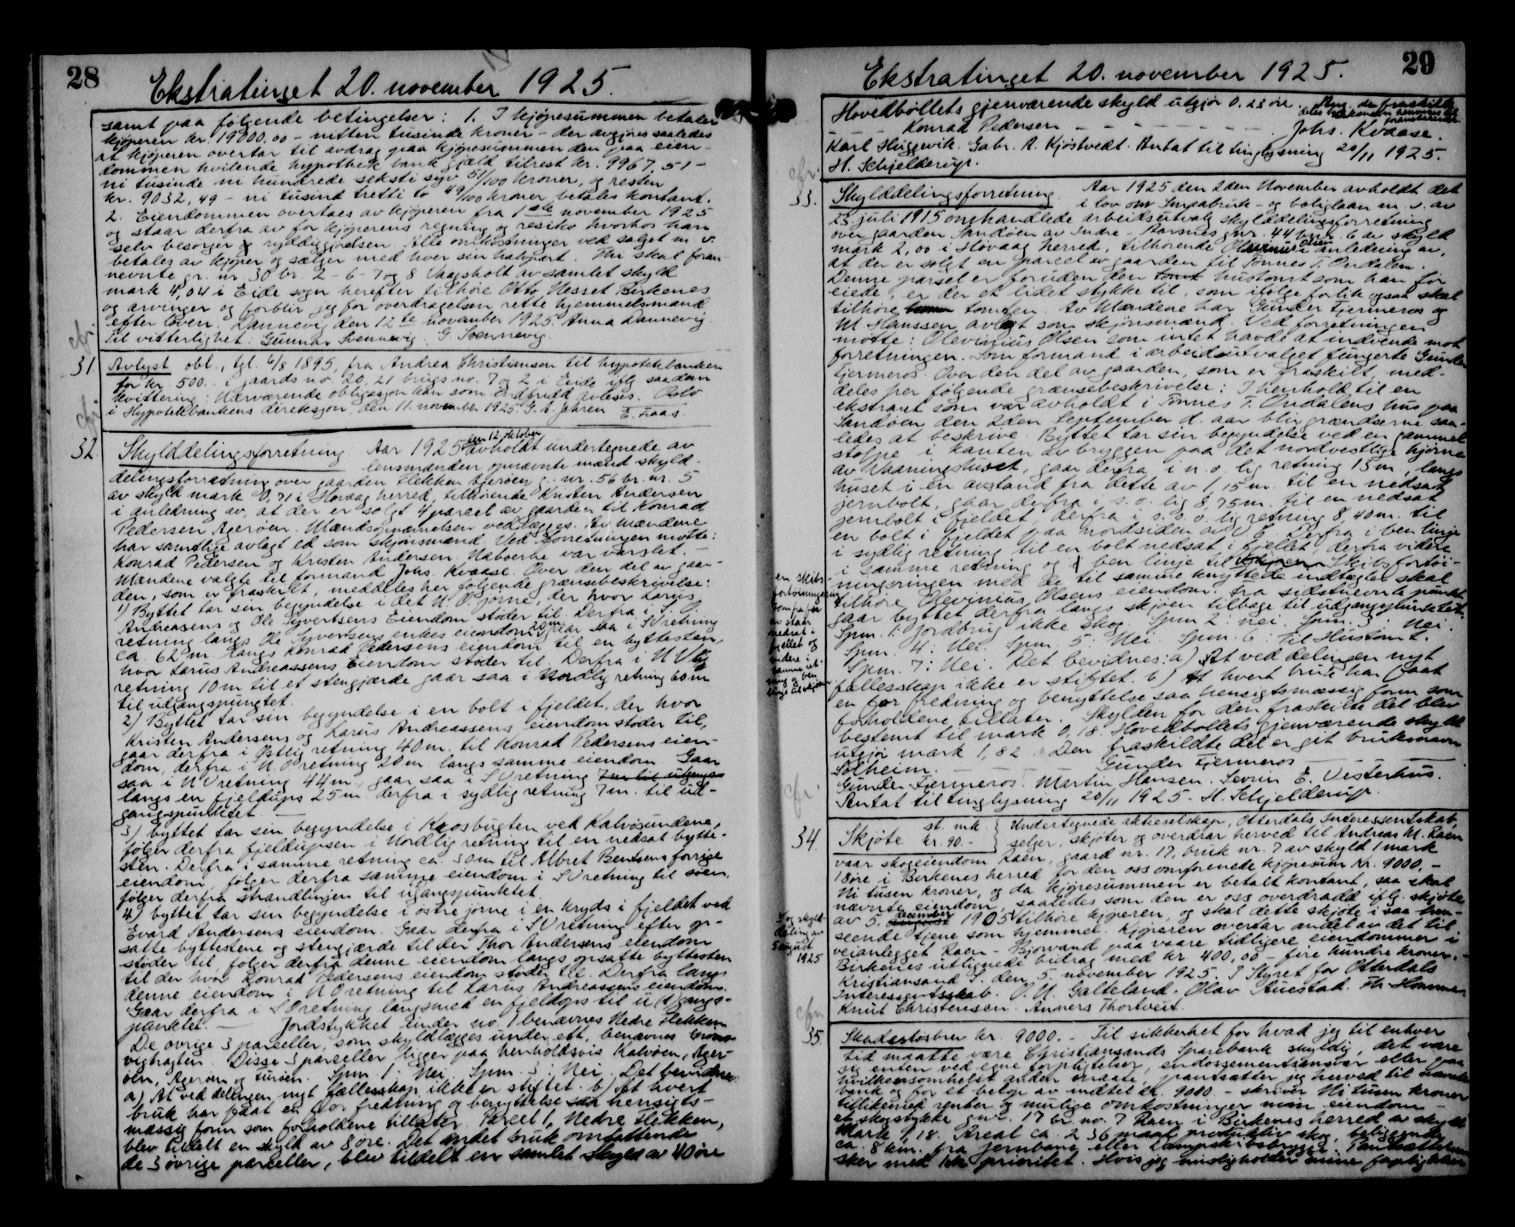 28
Ekstratinget 20. november 1925.
samt paa følgende betingelser: 1. I kjøpesummen betaler
kjøperen kr. 19000,00 - nitten tusinde kroner - der avgjøres saaledes
at kjøperen overtar til avdrag paa kjøpesummen den paa eien-
dommen hvilende hypothekbankgjæld tilrest kr. 9967,51 -
ni tusinde ni hundrede seksti syv 51/100 kroner, og resten
kr. 9032,49 - ni tusind tretti to 49/100 kroner betales kontant.
2. Eiendommen overtaes av kjøperen fra 1ste november 1925
og staar derfra av for kjøperens regning og resiko hvorhos han
selv besørger ryddiggjørelsen. Alle omkostninger ved salget m. v.
betales av kjøper og sælger med hver sin halvpart. Thi skal foran-
nevnte gr. nr. 30 br. 2-6-7 og 8 Vaagsholt av samlet skyld
mark 4,04 i Eide sogn herefter tilhøre Otto Nesset Birkenes
og arvinger og forblir jeg for overdragelsen rette hjemmelsmand
efter loven. Dannevig den 12te november 1925. Anna Dannevig
Til vitterlighet: Gunnar Dannevig. G. Svennevig.
31. Avlyst obl., tgl. 6/8 1895, fra Andrea Christiansen til hypotekbanken
for kr. 500.- i gaards no. 20, 21 bruks no. 7 og 2 i Eide iflg. saadan
kvittering: Nærværende obligasjon kan som indfridd avleses. Oslo
i Hypotekbankens direksjon, den 11. november 1925. G. A. Jahren E. Haas
32. Skylddelingsforretning Aar 1925 den 12 oktober avholdt undertegnede av
lensmanden opnævnte mænd skyld-
delingsforretning over gaarden Hekken Agerøen g. nr. 56 br. nr. 5
av skyld mark 0,71 i Høvaag herred, tilhørende Kristen Andersen
i anledning av, at der er solgt 4 parcel av gaarden til Konrad
Pedersen Agerøen. Mændsopnævnelsen vedlægges. Av mændene
har samtlige avlagt ed som skjønsmænd. Ved forretningen møtte:
Konrad Pedersen og Kristen Andersen. Naboerne var varslet. -
Mændene valgte til formand Johs. Kvaase. Over den del av gaar-
den, som er fraskilt, meddeles her følgende grænsebeskrivelse:
1) Byttet tar sin begyndelse i det N. Ø. hjørne, der hvor Larus
Andreasens og Ole Syvertsens Eiendom støder til. Derfra i S. Ø.
retning langs Ole Syvertsens enkes eiendom 20 m gaar saa i SV retning
ca 62 m langs Konrad Pedersens eiendom til en byttesten,
hvor Larus Andreassens Eiendom støder til. Derfra i N V lig
retning 10 m til et stengjærde gaar saa i Nordlig retning 60 m
til udgangspunktet.
2) Byttet tar sin begyndelse i en bolt i fjeldet, der hvor
Kristen Andersens og Larus Andreassens eiendom støder til,
gaar derfra i Østlig retning 40 m. til Konrad Pedersens eien-
dom, derfra i N. Ø retning 20 m langs samme eiendom. Gaar
saa i NV retning 44 m, gaar saa i SV retning
langs en fjeldups 25 m derfra i sydlig retning 7 m. til ud-
gangspunktet. -
3) byttet tar sin begyndelse i Kaosbugten ved Kalvøsundene,
følger derfra fjeldupsen i Nordlig retning til en nedsat bytte-
sten. Derfra i samme retning ca 30 m til Albret Bentsens forrige
eiendom, følger derfra samme eiendom i SV retning til søen,
følger derfra strandlinjen til ugangspunktet.
4) byttet tar sin begyndelse i østre jørne i en kryds i fjeldet ved
Evard Andersens eiendom. Gaar derfra i SV retning efter op-
satte byttestene og stengjærde til der Thor Andersens eiendom
støder til, følger derfra denne eiendom langs opsatte byttesten
til der hvor Konrad Pedersens eiendom støder til. Derfra langs
denne eiendom i N Ø retning til Larus Andreassens eiendom.
Gaar derfra i S Ø retning langsmed en fjeldups til u(d)gangs-
punktet. - Jordstykket under no. 1 benævnes Nedre Hekken
De øvrige 3 parceller, som skyldlægges under ett, benævnes
Disse 3 parceller ligger paa henholdsvis Kalvøen, Ager-
øen, Agerøen og Furøen. Spm. 1: Nei. Spm. 3: Nei. Det bevidnes:
a) At ved delingen nyt fællesskap ikke er stiftet. b) At hvert
bruk har faaet en for fredning og benyttelse saa hensigts-
mæssig form som forholdene tillater. Parcel 1, Nedre Hekken,
blev tildelt en skyld av 8 øre. Det andet bruk omfattende
de 3 øvrige parceller, blev tildelt en samlet skyld av 40 øre
29
Ekstratinget 20. november 1925.
Hovedbøllets gjenværende skyld utgjør 0.23 øre.
Konrad Pedersen - - - - - Johs. Kvaase.
Karl Heggevik. Gabr. A. Kjøstvedt. Antat til tinglysning 20/11 1925.
H. Schjelderup.
33. Skylddelingsforretning. Aar 1925 den 2den November avholdt det
i lov om Smaabruk- og boliglaan m. v. av
23 juli 1915 omhandlede arbeidsutvalg skylddelingsforretning
over gaarden Sandøen av Indre-Aarsnes gnr. 44 bnr. 6 av skyld
mark 2,00 i Høvaag herred, tilhørende Olevinius Olsen i anledning av,
at der er solgt en parcel av gaarden til Tønnes T. Ørdalen.
Denne parsel er foruden den hustomt som han før
eiede, er der et lidet stykke til, som ifølge forlik ogsaa skal
tilhøre tomten. Av Mændene har Gunder Fjermeros og
M. Hanssen avlagt som skjønsmænd. Ved forretningen
møtte: Olevinius Olsen som intet havde at indvende mot
forretningen. Som formand i arbeidsutvalget fungerte Gunder
Fjermeros. Over den del av gaarden, som er fraskilt, med-
deles her følgende grænsebeskrivelse: I henhold til en
ekstrart som var avholdt i Tønnes T. Ørdalens hus paa
Sandøen den 2den September d. aar blir grændserne saa-
ledes at beskrive. Byttet tar sin begyndelse ved en gammel
stolpe i kanten av bryggen paa det nordvestlige hjørne
av Vaaningshuset, gaar derfra i n. ø. lig retning 15 m., langs
huset i en avstand fra dette av 1,15 m. til en nedsat
jernbolt, gaar derfra i s. ø. lig 8,75 m. til en nedsat
jernbolt i fjeldet, derfra i s. s. ø. lig retning 8,40 m. til
en bolt i fjeldet paa nordsiden av V 6. Derfra i ben linje
i sydlig retning til en bolt nedsat i fjellet, derfra videre
i samme retning og i ben linje til Skibsfortøi-
ningsringen med de til samme knyttede indtægter skal
tilhøre Olevinius Olsens eiendom. Fra sidstnævnte punkt
gaar byttet derfra langs sjøen tilbage til udgangspunktet.
Spm. 1: Jordbrug ikke skog. Spm. 2: nei. Spm. 3: Nei.
Spm. 4: Nei. Spm. 5: Nei. Spm. 6: Til Hustomt.
Spm. 7: Nei. Det bevidnes: a) At ved delingen nyt
fællesskap ikke er stiftet. b) At hvert bruk har faaet
en for fredning og benyttelse saa hensigtsmæssig form som
forholdene tillater. Skylden for den fraskilte del blev
bestemt til mark 0,18. Hovedbøllets gjenværende skyld
utgjør mark 1,82. Den fraskildte del er git bruksnavn
Solheim. - Gunder Fjermeros -
Gunder Fjermeros. Martin Hansen. Severin E. Vesterhus.
Antat til tinglysning 20/11 1925. H. Schjelderup.
34. Skjøte st. mk. kr. 90.- Undertegnede aktieselskap, Otterdals Interessentskab,
selger, skjøter og overdrar herved til Andreas M. Raen
vaar skogeiendom Raen, gaard nr. 17, bruk nr. 7 av skyld 1 mark
18 øre i Birkenes herred for den oss omforenede kjøpesum kr. 9000,-
Ni tusen kroner, og da kjøpesummen er betalt kontant, saa skal
nævnte eiendom saaledes som den er oss overdradd iflg. skjøte
av 5. december 1905 tilhøre kjøperen, og skal dette skjøte i saa hen-
seende tjene som hjemmel. Kjøperen overtar andel av det til
veianlegget Raen - Bjorvand paa vaare tidligere eiendommer i
Birkenes utlignede bidrag med kr 400,00 - fire hundre kroner. -
Kristiansand S. den 5. november 1925. I Styret for Otterdals
Interessentskab. O. N. Galteland. Olav Auestad.
Knut Christensen. Anders Thortveit.
35. Skadesløsbrev kr. 9000.- Til sikkerhet for hvad jeg til enhver
tid maatte være Christianssands Sparebank skyldig, det være
sig enten ved egne forpligtelser, endossementsansvar eller paa
hvilkensomhelst anden maate, pantsætter jeg herved til nævnte
bank og for et beløp av indtil kr. 9000.- skriver Ni tusen kroner
tillikemed renter og mulige omkostninger min eiendom
et skogstykke g. nr. 17 br. no. 7 Raen i Birkenes herred av skyld
Mark 1,18. Areal ca. 236 maal produktiv skog, beliggende
ca. 8 km. fra jernbane eller Dampskibsbrygge. Pantsettelsen
sker med 1ste prioritet. Hvis jeg misligholder mine forpligtelser
en Skibs-
fortøiningsring
som paa
av staar
nedsat i
fjellet og
videre i
samme ret-
ning og ben
linje til sjøen
og skyld-
deling av
5 august
1925